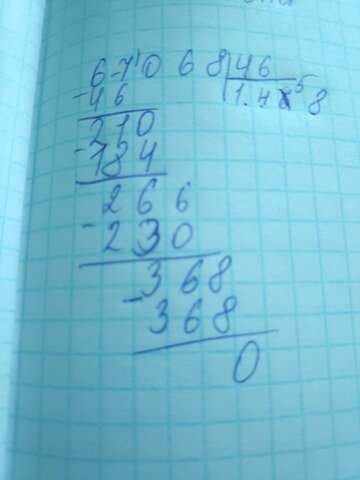 67068 46
-46 1.458
210
-184
266
-230
368
-368
0